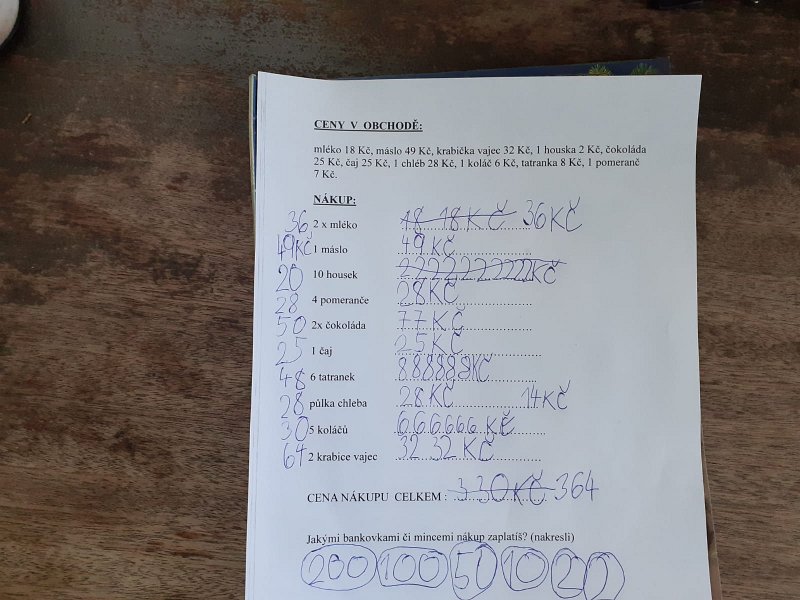 CENY V OBCHODĚ:
mléko 18 Kč, máslo 49 Kč, krabička vajec 32 Kč, 1 houska 2 Kč, čokoláda
25 Kč, čaj 25 Kč, 1 chléb 28 Kč, 1 koláč 6 Kč, tatranka 8 Kč, 1 pomeranč
7 Kč.
NÁKUP:
36 2 x mléko 18 18 KČ 36 KČ
49KČ 1 máslo 49 KČ
20 10 housek 2222222222KČ
28 4 pomeranče 28KČ
50 2x čokoláda 77 KČ
25 1 čaj 25 KČ
48 6 tatranek 888888KČ
28 půlka chleba 28KČ 14KČ
30 5 koláčů 666666 KČ
64 2 krabice vajec 32 32 KČ
CENA NÁKUPU CELKEM : 330KČ 364
Jakými bankovkami či mincemi nákup zaplatíš? (nakresli)
200 100 50 10 2 2